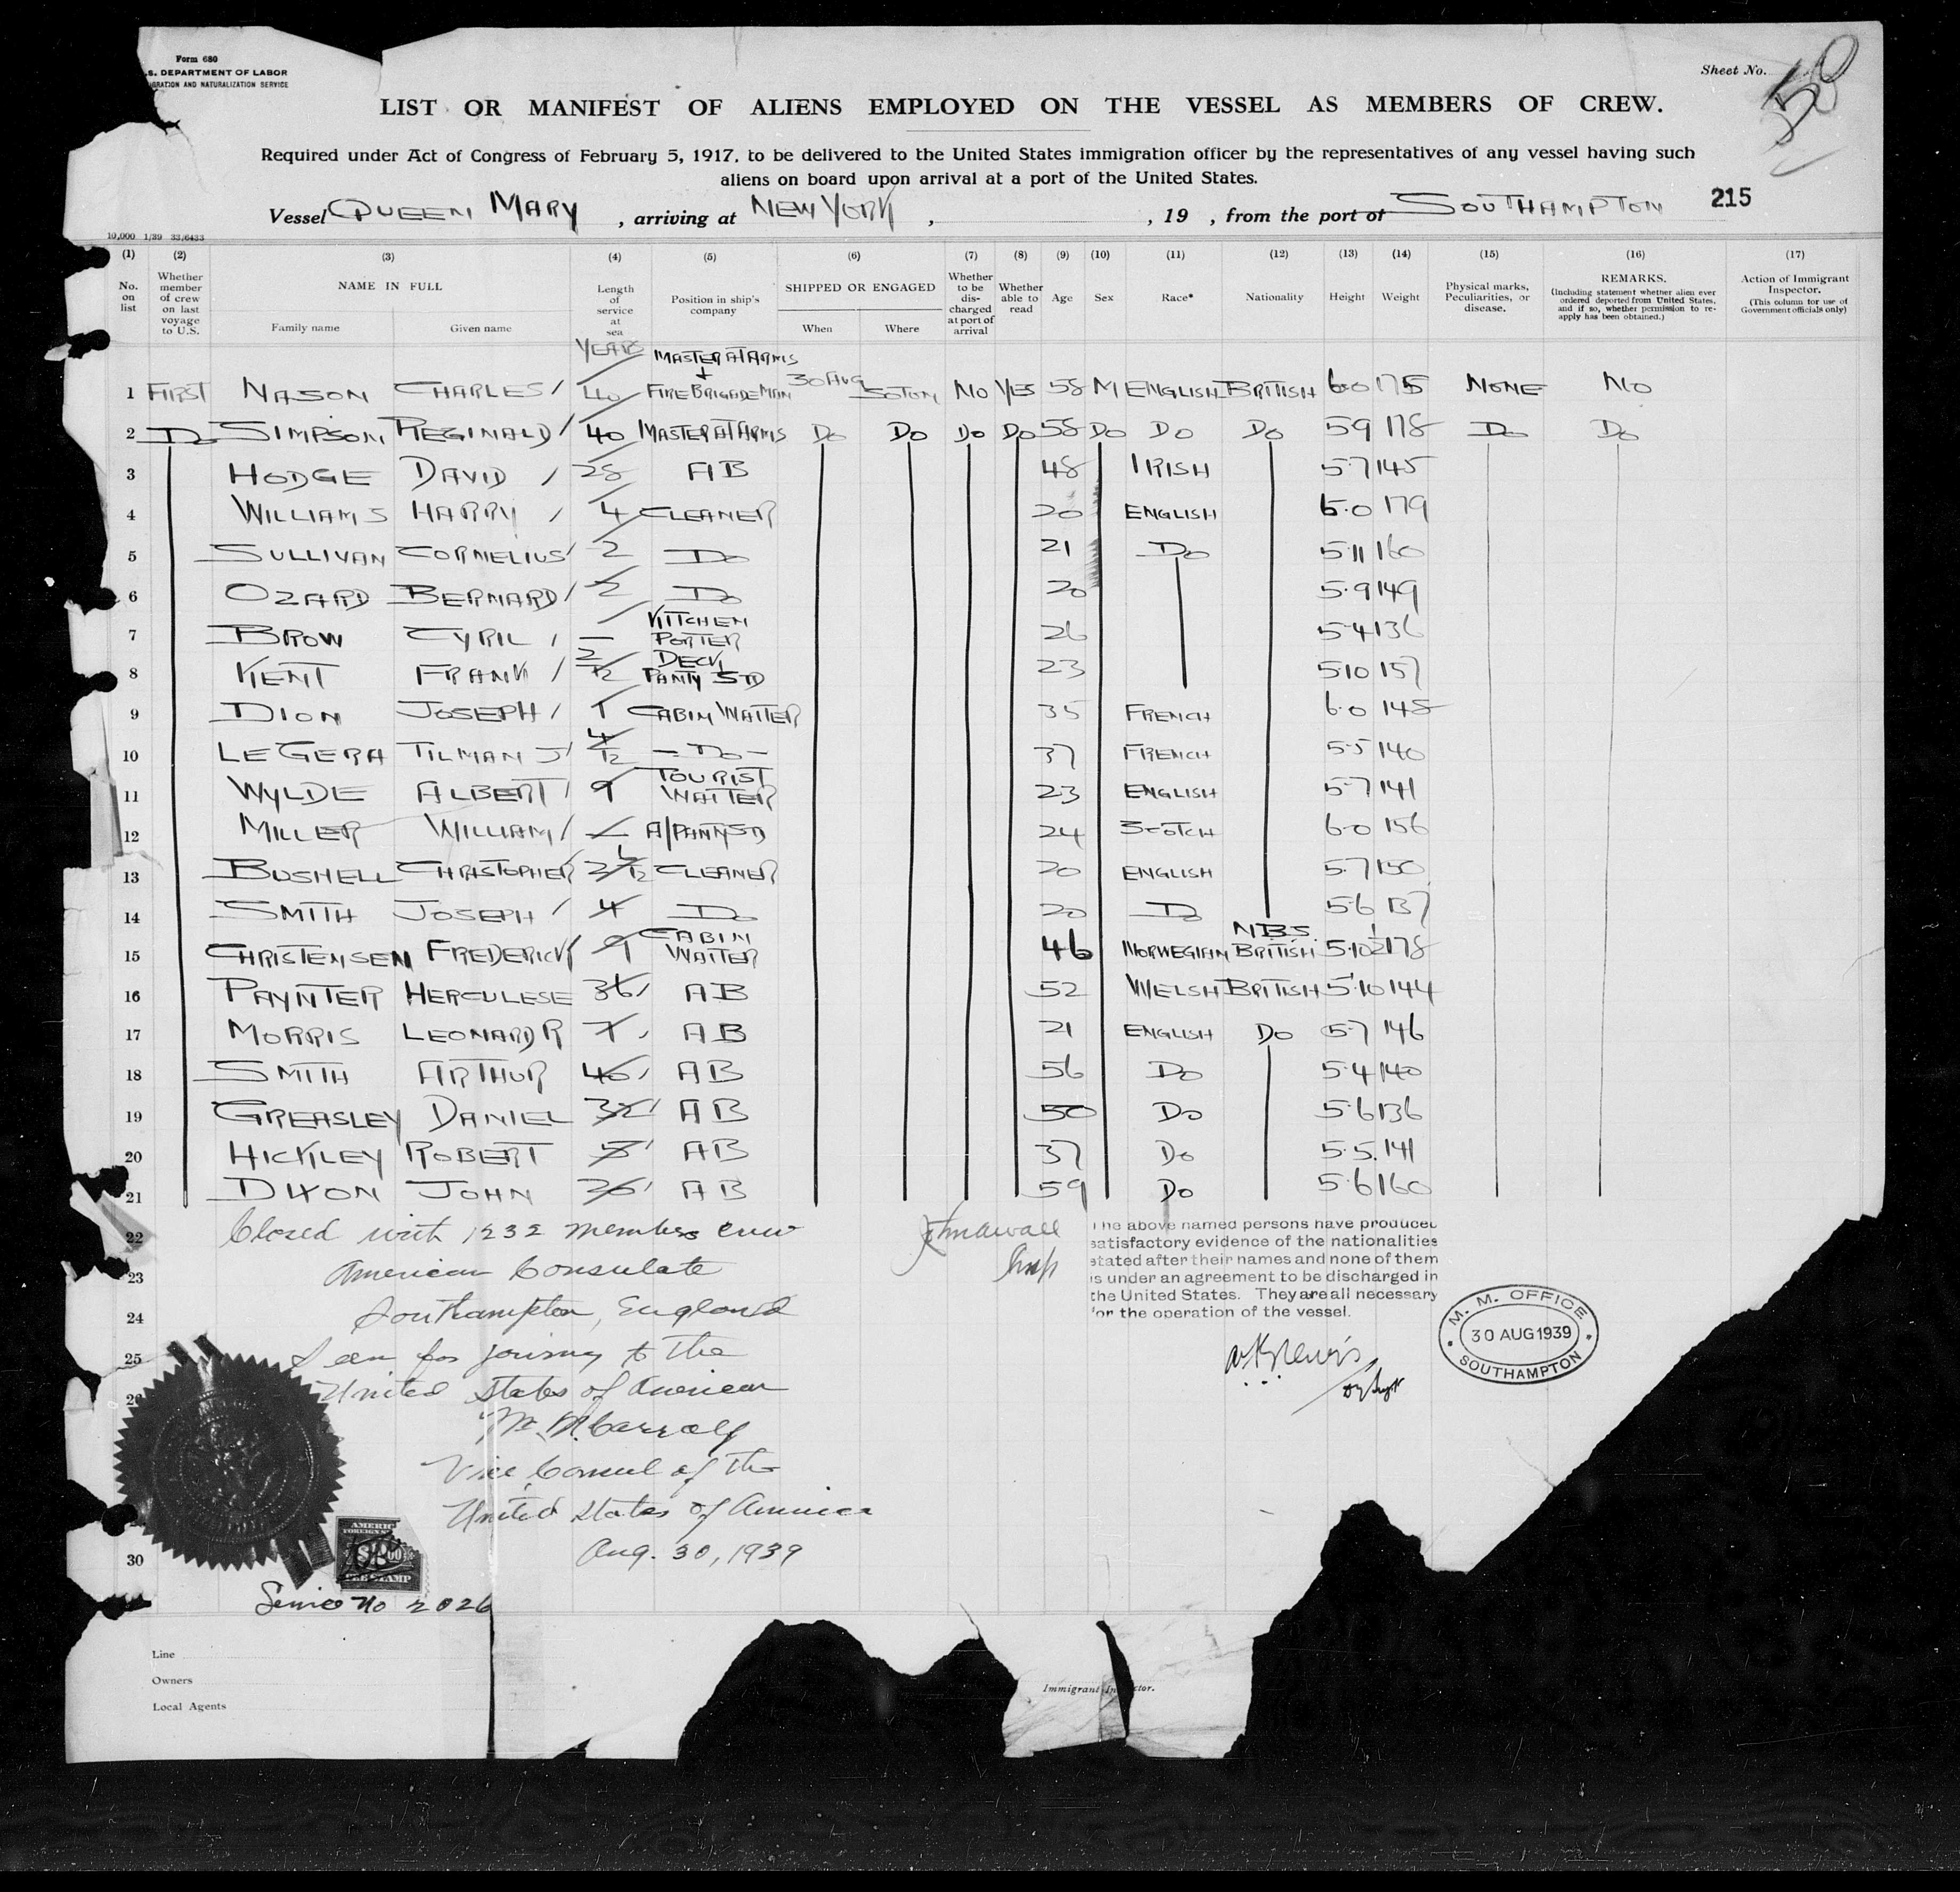 Form 680
S. DEPARTMENT OF LABOR
GRATION AND NATURALIZATION SERVICE
Sheet No. 50
LIST OR MANIFEST OF ALIENS EMPLOYED ON THE VESSEL AS MEMBERS OF CREW.
Required under Act of Congress of February 5, 1917, to be delivered to the United States immigration officer by the representatives of any vessel having such
aliens on board upon arrival at a port of the United States.
Vessel QUEEN MARY, arriving at NEW YORK, , 19 , from the port of SOUTHAMPTON 215
10,000 1/39 33/6433
(1) (2) (3) (4) (5) (6) (7) (8) (9) (10) (11) (12) (13) (14) (15) (16) (17)
No. on list
Whether member of crew on last voyage to U.S.
NAME IN FULL
Family name Given name
Length of service at sea
Position in ship's company
SHIPPED OR ENGAGED
When Where
Whether to be discharged at port of arrival
Whether able to read
Age
Sex
Race*
Nationality
Height
Weight
Physical marks, Peculiarities, or disease.
REMARKS.
(Including statement whether alien ever ordered deported from United States, and if so, whether permission to re-apply has been obtained.)
Action of Immigrant Inspector.
(This column for use of Government officials only)
YEARS
1 FIRST NASON CHARLES 40 MASTER AT ARMS + FIRE BRIGADE MAN 30 AUG SOTON NO YES 58 M ENGLISH BRITISH 6.0 175 NONE NO
2 Do SIMPSON REGINALD 40 MASTER AT ARMS Do Do Do Do 58 Do Do Do 5 9 178 Do Do
3 HODGE DAVID 28 AB 48 IRISH 5.7 145
4 WILLIAMS HARRY 4 CLEANER 20 ENGLISH 6.0 179
5 SULLIVAN CORNELIUS 2 Do 21 Do 5 11 160
6 OZARD BERNARD 2 Do 20 5.9 149
7 BROW CYRIL — KITCHEN PORTER 26 5.4 136
8 KENT FRANK 2/12 DECK PANTY STD 23 5.10 157
9 DION JOSEPH 1 CABIN WAITER 35 FRENCH 6.0 148
10 LEGERA TILMAN J 4/12 - Do - 37 FRENCH 5.5 140
11 WYLDE ALBERT 9 TOURIST WAITER 23 ENGLISH 5.7 141
12 MILLER WILLIAM — A/PANTY STD 24 SCOTCH 6.0 156
13 BUSHELL CHRISTOPHER 2 6/12 CLEANER 20 ENGLISH 5.7 150
14 SMITH JOSEPH 4 Do 20 Do 5.6 137
15 CHRISTENSEN FREDERICK 9 CABIN WAITER 46 NORWEGIAN NBS. BRITISH 5.10½ 178
16 PAYNTER HERCULESE 36 AB 52 WELSH BRITISH 5.10 144
17 MORRIS LEONARD R 7 AB 21 ENGLISH Do 5.7 146
18 SMITH ARTHUR 40 AB 56 Do 5.4 140
19 GREASLEY DANIEL 32 AB 50 Do 5.6 136
20 HICKLEY ROBERT 5 AB 37 Do 5.5. 141
21 DIXON JOHN AB 59 Do 5.6 160
22 Closed with 1232 members crew
23 American Consulate
24 Southampton, England
25 Seen for journey to the
26 United States of American
Carroll
Vice Consul of the
United States of America
30 Aug. 30, 1939
The above named persons have produced
satisfactory evidence of the nationalities
stated after their names and none of them
is under an agreement to be discharged in
the United States. They are all necessary
for the operation of the vessel.
M. M. OFFICE
30 AUG 1939
SOUTHAMPTON
AMERIC
FOREIGN S
$2.00
FEE STAMP
Service No 2026
Line
Owners
Local Agents
Immigrant Inspector.